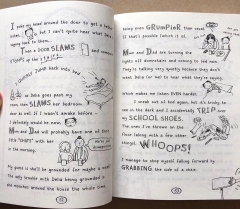 I poke my head around the door to get a better
listen, but I can't quite hear what Delia's
saying to them.
Then a DOOR SLAMS and someone
STOMPS up the STAIRS
I QUICKLY JUMP back into bed
as Delia goes past my
room, then SLAMS her bedroom
door as well. If I wasn't awake before
I definitely would be now.
Mum and Dad will probably have one of their
"CHATS" with her
in the morning.
My guess is she'll be grounded for maybe a week?
The only trouble with Delia being grounded is
she moochs around the house the whole time
being even GRUMPIER than usual.
(If that's possible (which it is).
Mum and Dad are turning the
lights off downstairs and coming to bed now.
They're talking very quietly because they don't
want Delia (or me) to hear what they're saying.
Which makes me listen EVEN harder.
I sneak out of bed again, but it's tricky to
see in the dark and I accidentally TRIP over
my SCHOOL SHOES.
The ones I've thrown on the
floor (along with a few other
things).
WHOOPS!
I manage to stop myself falling forward by
GRABBING the side of a chair.